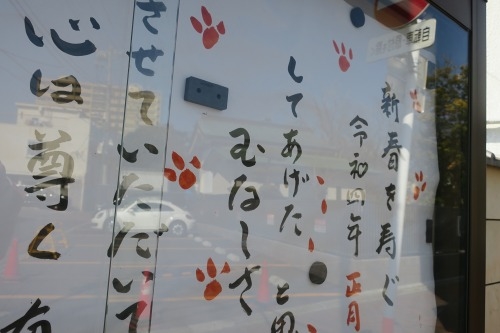 新春を寿ぐ
令和四年 正月
してあげた と思
むなしさ
させていただいて
心は尊く 有